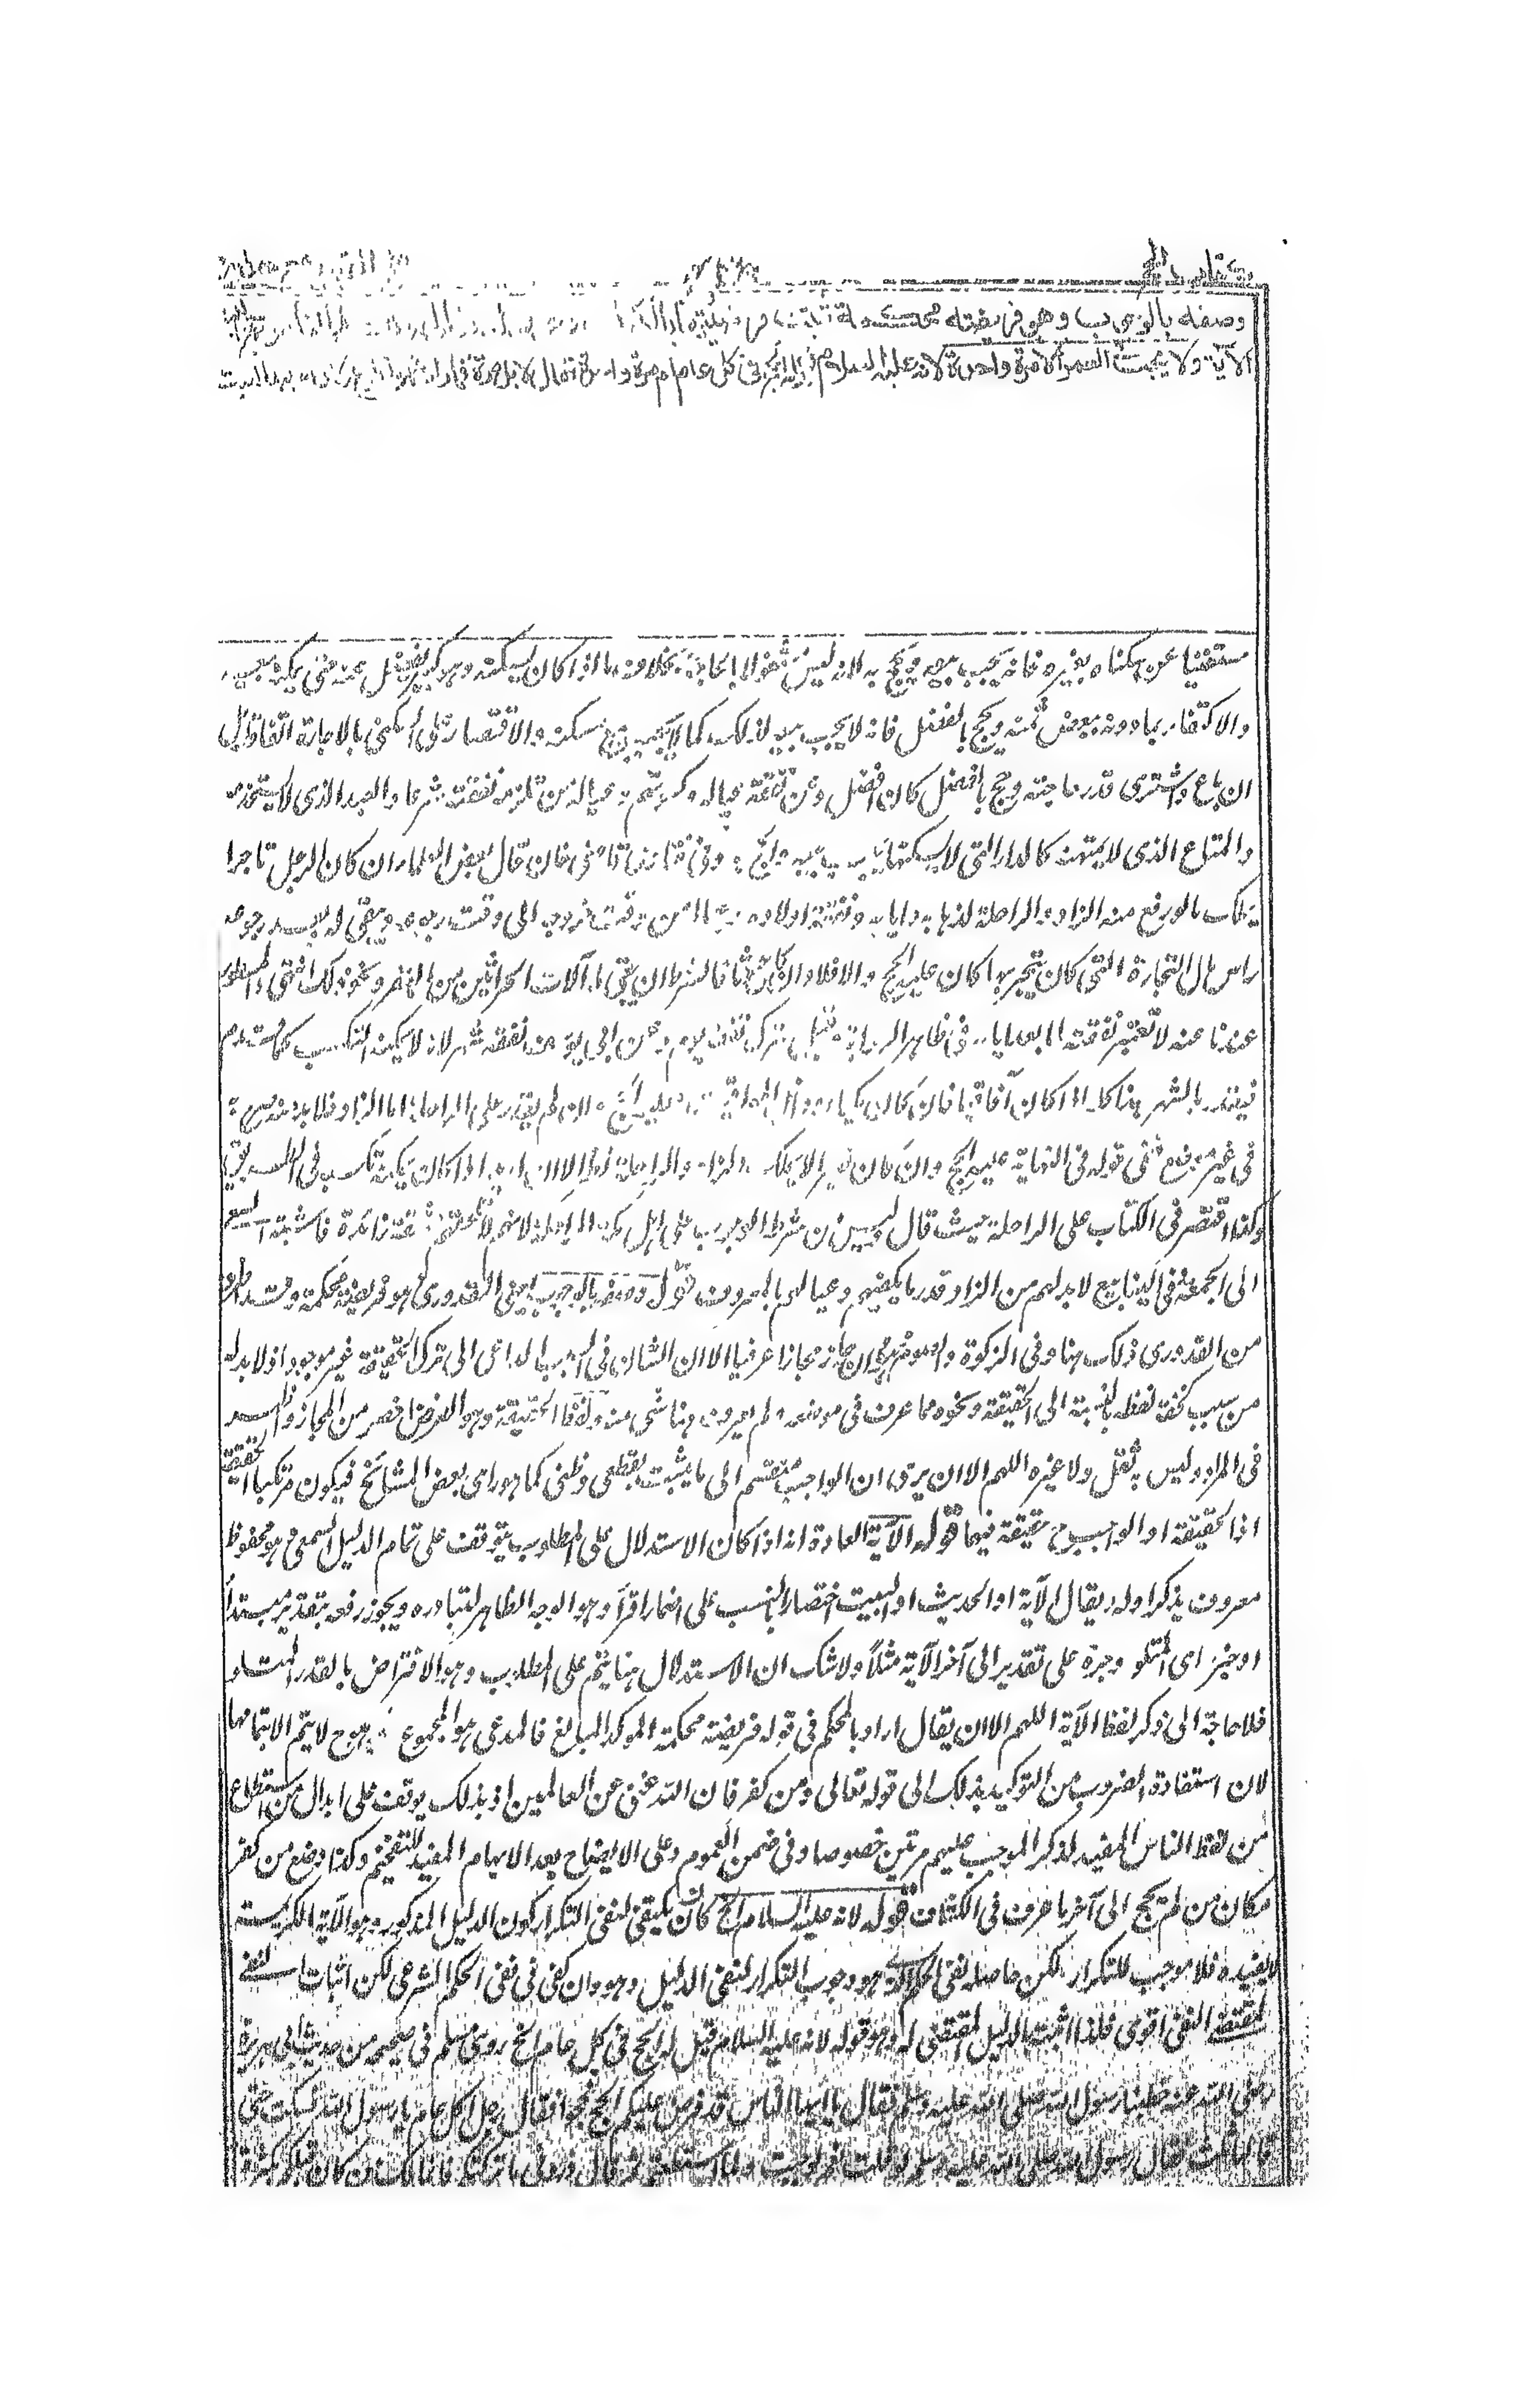 كتاب الحج
وصفه بالوجوب وهو فريضة محكمة ثبتت فرضيته
الآية ولا يجب في العمر الا مرة واحدة لانه عليه السلام قيل له الحج في كل عام ام مرة واحدة فقال لا بل مرة فما زاد فهو تطوع
مستغنيا عن سكناه بغيره فانه يجب بيعه ويحج به لانه ليس مشغولا بالحاجة بخلاف ما اذا كان يسكنه وهو كبير يفضل عنه حتى يمكنه بيعه
والاكتفاء بما دونه ببعض ثمنه ويحج بالفضل فانه لا يجب بيعه لذلك كما لا يجب بيع مسكنه والاقتصار على السكنى بالاجارة اتفاقا بل
ان باع واشترى قدر حاجته وحج بالفضل كان افضل وعن نفقة عياله وكسوتهم وعياله من تلزمه نفقته شرعا والعبد الذي لا يستخدمه
والمتاع الذي لا يمتهنه كالدار التي لا يسكنها يجب بيعه في الحج وفي قاضي خان قال بعض العلماء ان كان الرجل تاجرا
يملك ما لو رفع منه الزاد والراحلة لذهابه وايابه ونفقة اولاده وعياله من وقت خروجه الى وقت رجوعه ويبقى له بعد رجوعه
راس مال التجارة التي كان يتجر بها كان عليه الحج والا فلا وان كان حراثا فالشرط ان يبقى له آلات الحراثين من البقر ونحو ذلك انتهى والمسطور
عندنا عنه لا تعتبر نفقته لما بعد ايابه في ظاهر الرواية وقيل يترك نفقة يوم وعن ابي يوسف نفقة شهر لانه لا يمكنه التكسب كما قدم
فيقدر بالشهر هذا كله اذا كان آفاقيا فان كان مكيا عليه الحج وان لم يقدر على الراحلة اما الزاد فلا بد منه
في غير موضع ففي قوله في النهاية عليه الحج وان كان فقيرا لا يملك الزاد والراحلة نظر الا ان يريد اذا كان يمكنه تكسبه في الطريق
وكذا اقتصر في الكتاب على الراحلة حيث قال وليس من شرط الوجوب على اهل مكة الراحلة لانهم لا تلحقهم مشقة زائدة فاشبه السعي
الى الجمعة وفي الينابيع لا بد لهم من الزاد قدر ما يكفيهم وعيالهم بالمعروف قوله وصفه بالوجوب يعني القدوري وهو فريضة محكمة وقد اطرد
من القدوري ذلك هنا وفي الزكوة والصوم وان جاز مجازا عرفيا الا ان الشان في السبب الداعي الى ترك الحقيقة غير موجود اذ لا بد له
من سبب كخفة لفظه بالنسبة الى الحقيقة ونحوه مما عرف في موضعه ولم يعرف هنا شيء منه ولفظ الحقيقة وهو الفرض اخصر من المجاز واظهر
في المراد وليس بثقل ولا غيره اللهم الا ان يرى ان الواجب منقسم الى ما يثبت بقطعي وظني كما هو راي بعض المشائخ فيكون مرتكبا الحقيقة
اذ الحقيقة او الواجب ح حقيقة فيهما قوله الآية العادة انه اذا كان الاستدلال على المطلوب يتوقف على تمام الدليل السمعي وهو محفوظ
معروف يذكر اوله ويقال الآية او الحديث او البيت اختصارا بالنصب على اضمار اقرأ وهو الوجه الظاهر لتبادره ويجوز رفعه بتقدير مبتدأ
او خبر اي المتلو وجره على تقدير الى آخر الآية مثلا ولا شك ان الاستدلال هنا يتم على المطلوب وهو الافتراض بالقدر المتلو
فلا حاجة الى ذكر لفظ الآية اللهم الا ان يقال اراد بالمحكم في قوله فريضة محكمة الموكد المبالغ فالمدعى هو المجموع وهو ح لا يتم الا بتمامها
لان استفادة الضروب من التوكيد بذلك الى قوله تعالى ومن كفر فان الله غني عن العالمين اذ بذلك يوقف على ابدال من استطاع
من لفظ الناس المفيد لذكر الموجب عليهم مرتين خصوصا وفي ضمن العموم وعلى الايضاح بعد الابهام المفيد للتفخيم وكذا وضع من كفر
مكان من لم يحج الى آخر ما عرف في الكشاف قوله لانه عليه السلام الخ كان يكفي لنفي التكرار كون الدليل المذكور وهو الآية الكريمة
لا يفيده فلا موجب للتكرار لكن حاصله نفي الحكم الذي هو وجوب التكرار لنفي الدليل وهو وان كفى في نفي الحكم الشرعي لكن اثبات النفي
لمقتضى النفي اقوى فلذا اثبت بالدليل المقتضي له وهو قوله لانه عليه السلام قيل له الحج في كل عام الخ روى مسلم في صحيحه من حديث ابي هريرة
رضي الله عنه خطبنا رسول الله صلى الله عليه وسلم فقال يا ايها الناس قد فرض عليكم الحج فحجوا فقال رجل اكل عام يا رسول الله فسكت حتى
قالها ثلثا فقال رسول الله صلى الله عليه وسلم لو قلت نعم لوجبت ولما استطعتم ثم قال ذروني ما تركتكم فانما هلك من كان قبلكم بكثرة